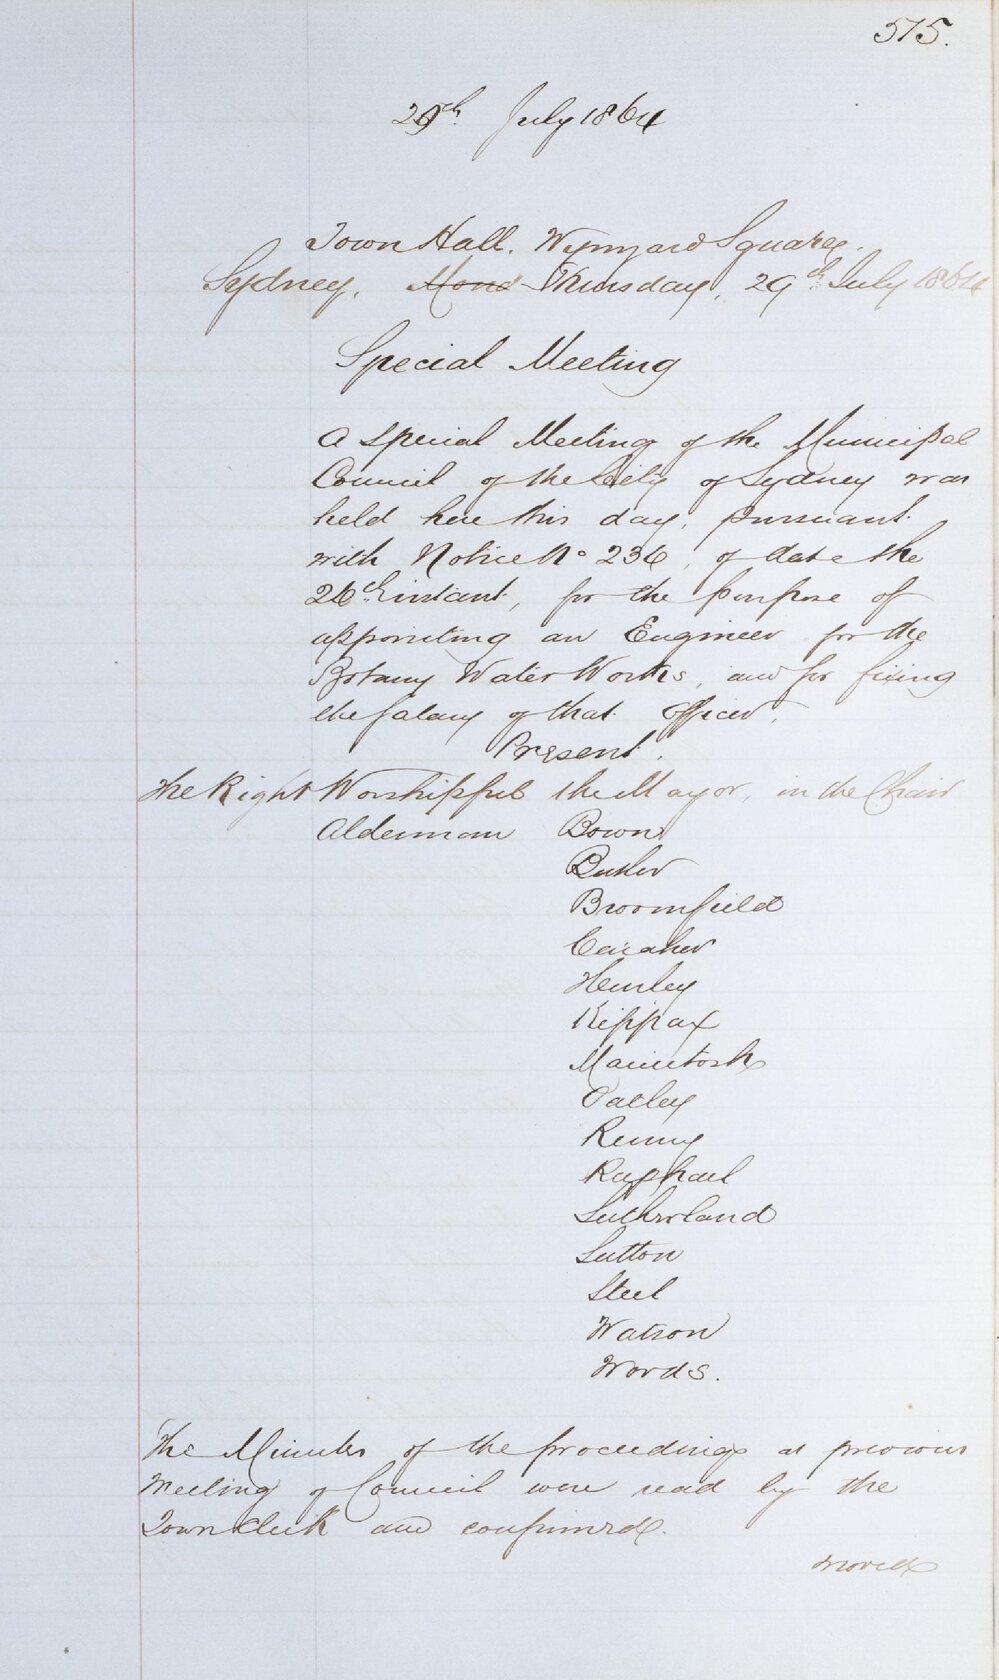 575.
29th July 1864
Town Hall. Wynyard Square.
Sydney. Mond Thursday, 29th July 1864
Special Meeting
A Special Meeting of the Municipal
Council of the City of Sydney was
held here this day, pursuant
with Notice No 236, of date the
26th instant, for the purpose of
appointing an Engineer for the
Botany Water Works, and for fixing
the salary of that Officer.
Present.
The Right Worshipful the Mayor, in the Chair
Alderman Bown
Butler
Broomfield
Caraher
Hurley
Kippax
Macintosh
Oatley
Renny
Raphael
Sutherland
Sutton
Steel
Watson
Woods.
The Minutes of the proceedings at previous
Meeting of Council were read by the
Town Clerk and confirmed.
moved